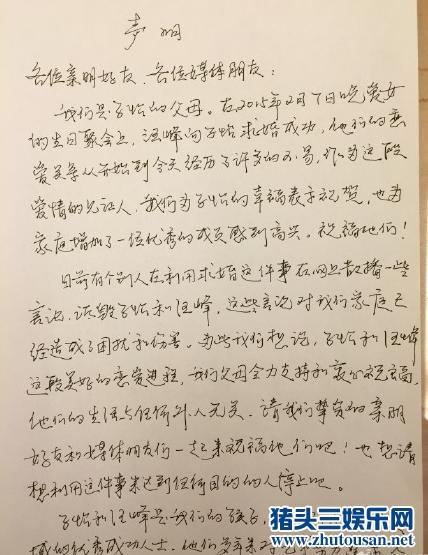 声明
各位亲朋好友、各位媒体朋友：
我们是子怡的父母。在2015年2月7日晚爱女
的生日聚会上，汪峰向子怡求婚成功，他们的恋
爱关系从开始到今天经历了许多的不易，作为这段
爱情的见证人，我们为子怡的幸福表示祝贺，也为
家庭增加了一位优秀的成员感到高兴。祝福他们！
目前有个别人在利用求婚这件事在网上散播一些
言论，诋毁子怡和汪峰，这些言论对我们家庭已
经造成了困扰和伤害。为此我们想说，子怡和汪峰
这段美好的恋爱进程，我们父母全力支持和衷心祝福，
他们的生活与任何外人无关。请我们挚爱的亲朋
好友和媒体朋友们一起来祝福他们吧！也想请
想利用这件事来达到任何目的的人停止吧。
子怡和汪峰是我们的孩子，
域的优秀成功人士，他们
猪头三娱乐网
www.zhutousan.net